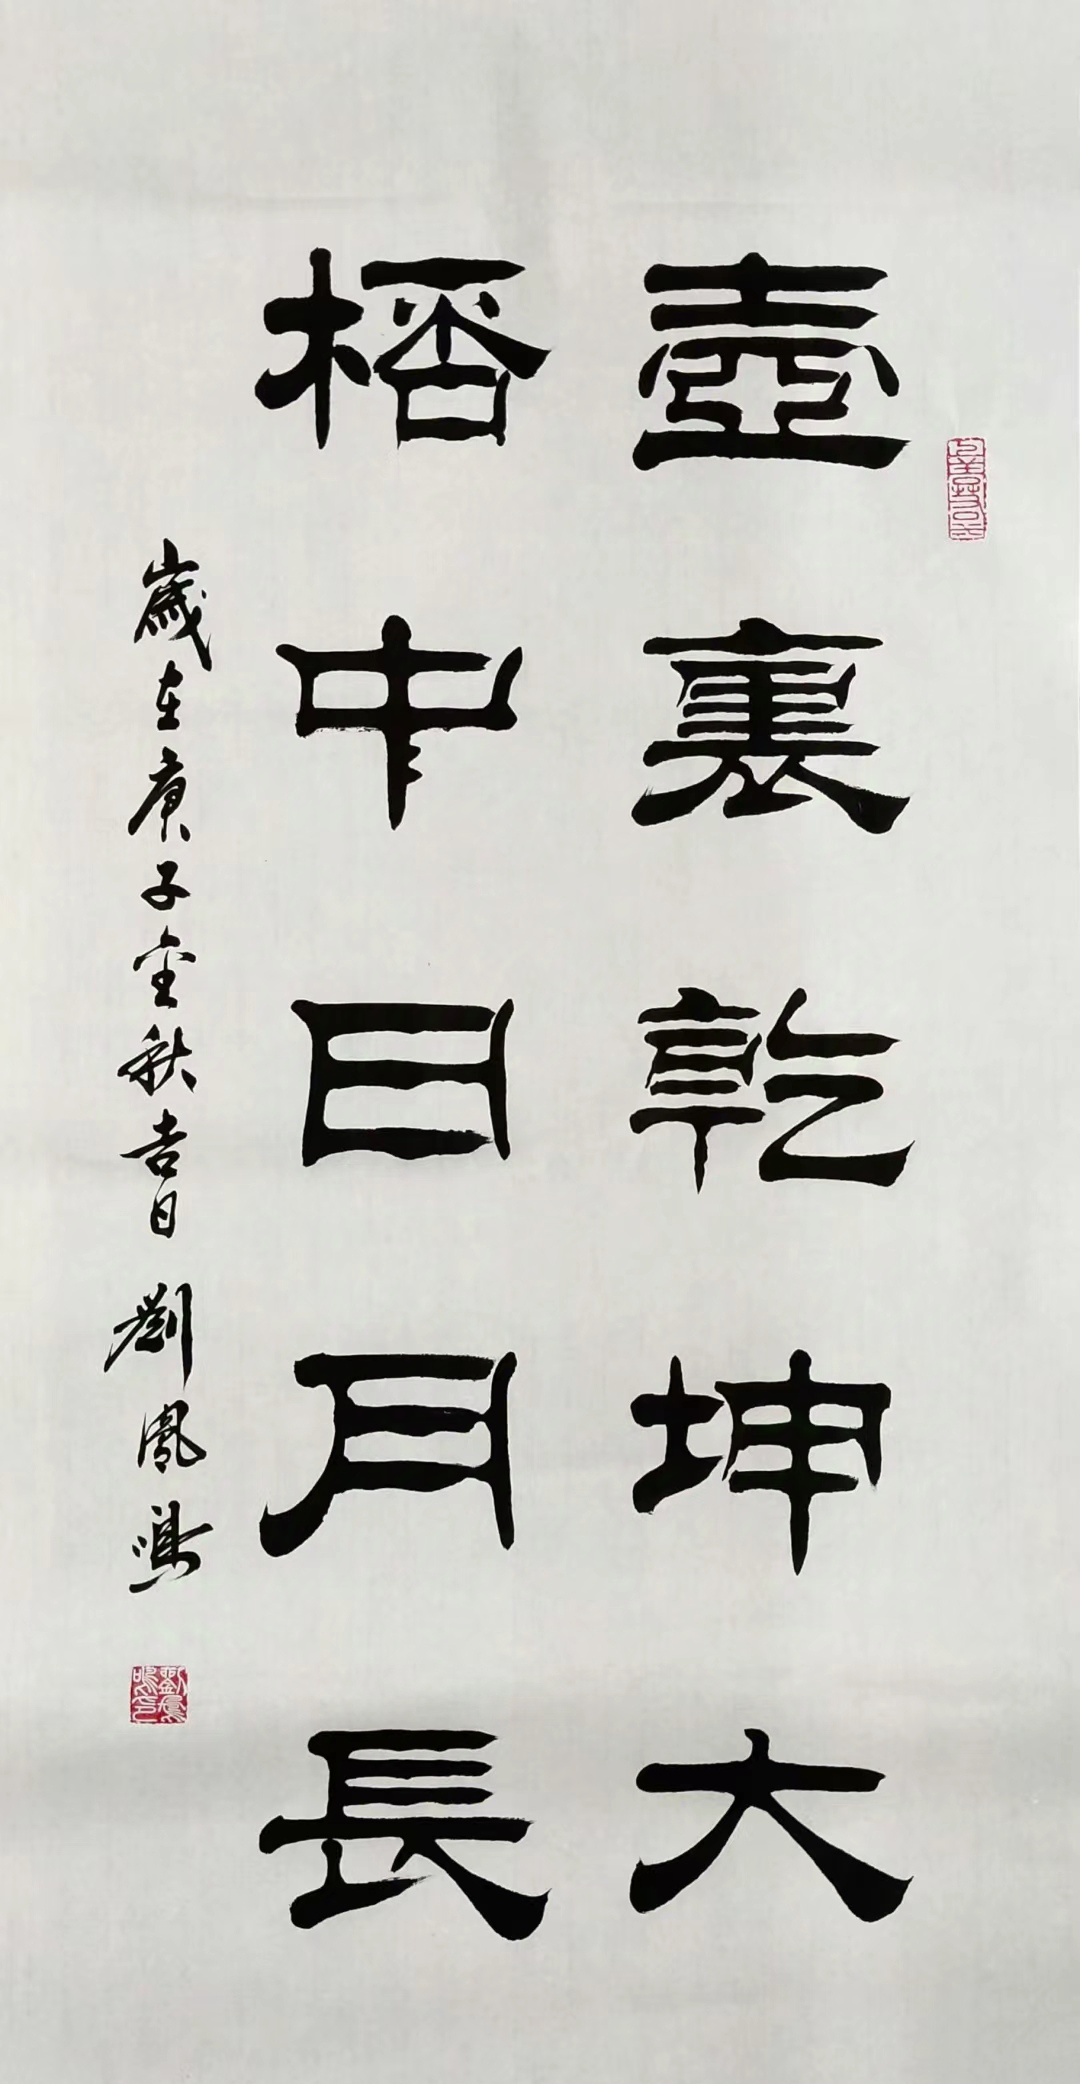 壺裏乾坤大
桮中日月長
歲在庚子金秋吉日 劉鳳鳴
劉鳳鳴印